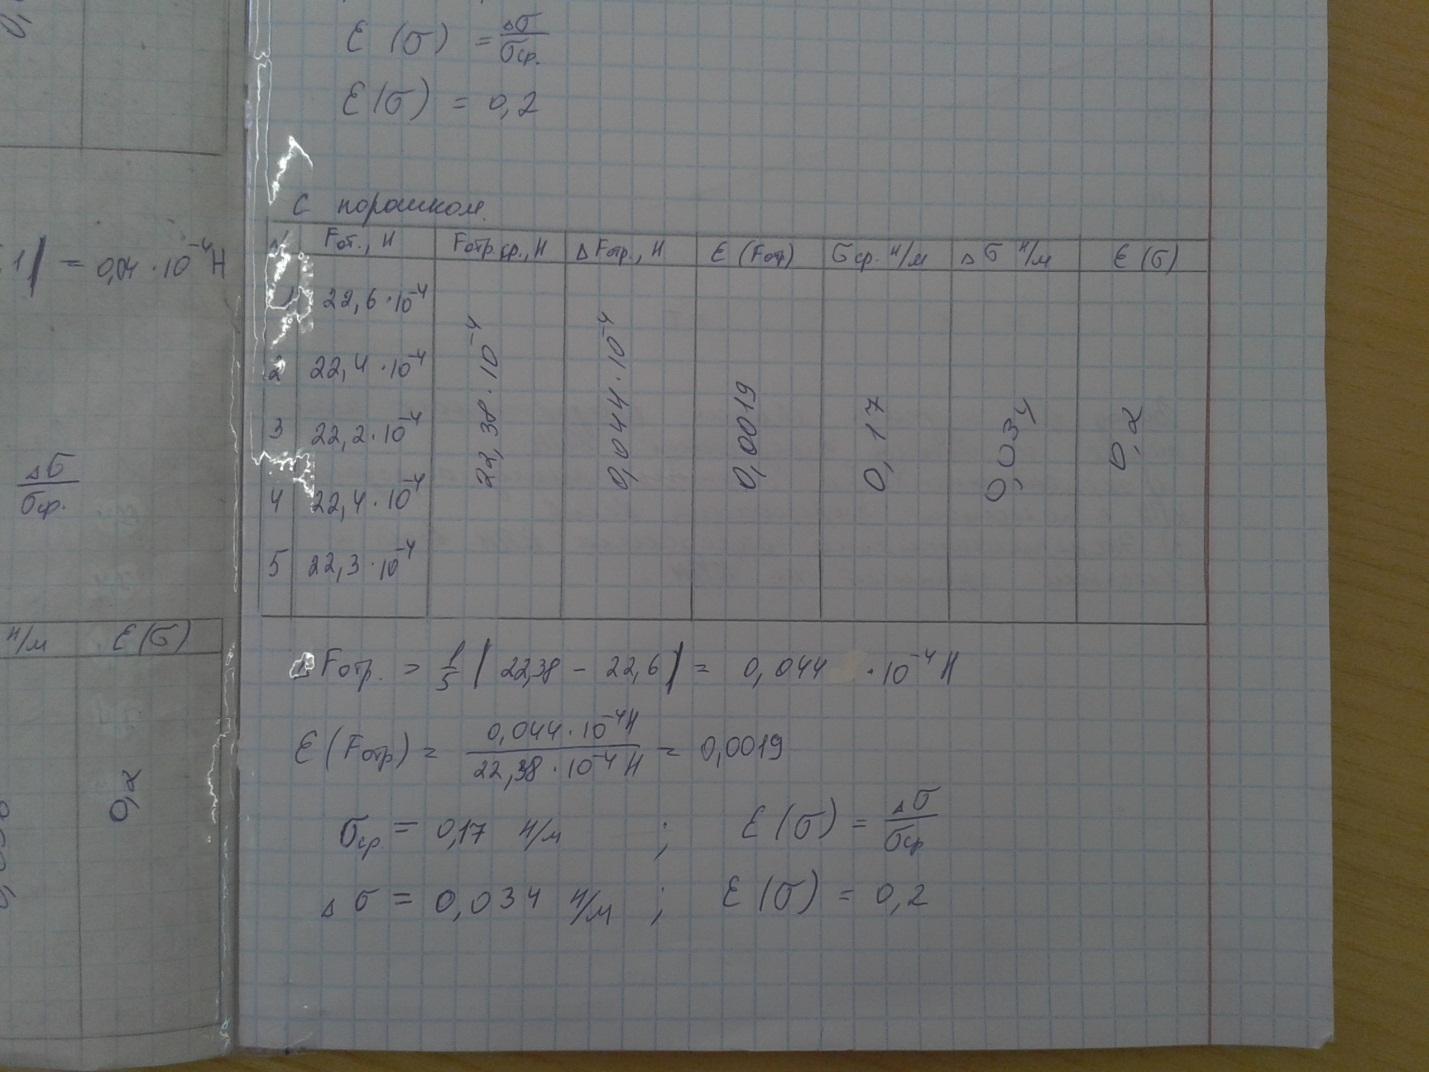 ε (σ) = Δσ/σср.
ε(σ) = 0,2
1| = 0,04 · 10⁻⁴ Н
Δσ/σср.
н/м ε(σ)
0,2
С порошком.
Fот., Н Fотр.ср., Н ΔFотр., Н ε (Fотр) σср. н/м Δσ н/м ε (σ)
1 22,6 · 10⁻⁴ 22,38 · 10⁻⁴ 0,044 · 10⁻⁴ 0,0019 0,17 0,034 0,2
2 22,4 · 10⁻⁴
3 22,2 · 10⁻⁴
4 22,4 · 10⁻⁴
5 22,3 · 10⁻⁴
ΔFотр. = 1/5 | 22,38 − 22,6 | = 0,044 · 10⁻⁴ Н
ε (Fотр) = 0,044 · 10⁻⁴ Н / 22,38 · 10⁻⁴ Н = 0,0019
σср = 0,17 н/м ; ε (σ) = Δσ/σср
Δσ = 0,034 н/м ; ε (σ) = 0,2